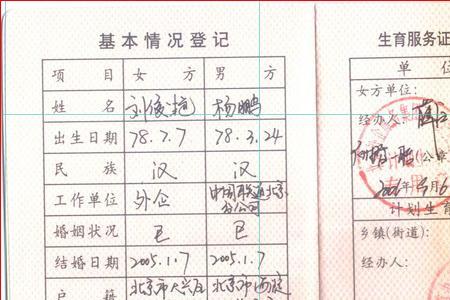 基本情况登记
项目 女方 男方
姓名 刘俊艳 杨鹏
出生日期 78.7.7 78.3.24
民族 汉 汉
工作单位 外企 中国联通北京
分公司
婚姻状况 已 已
结婚日期 2005.1.7 2005.1.7
户籍 北京市大兴区 北京市西
生育服务证
单位
女方单位:
经办人:
(公章
2006年5月6
计划生育
乡镇(街道):
经办人: